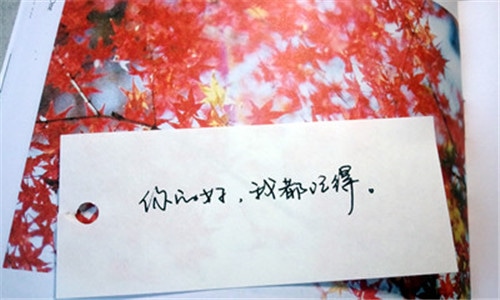 你的好，我都记得。